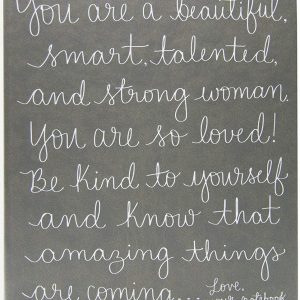 You are a beautiful,
smart, talented,
and strong woman.
You are so loved!
Be kind to yourself
and know that
amazing things
are coming...
Love,
your notebook